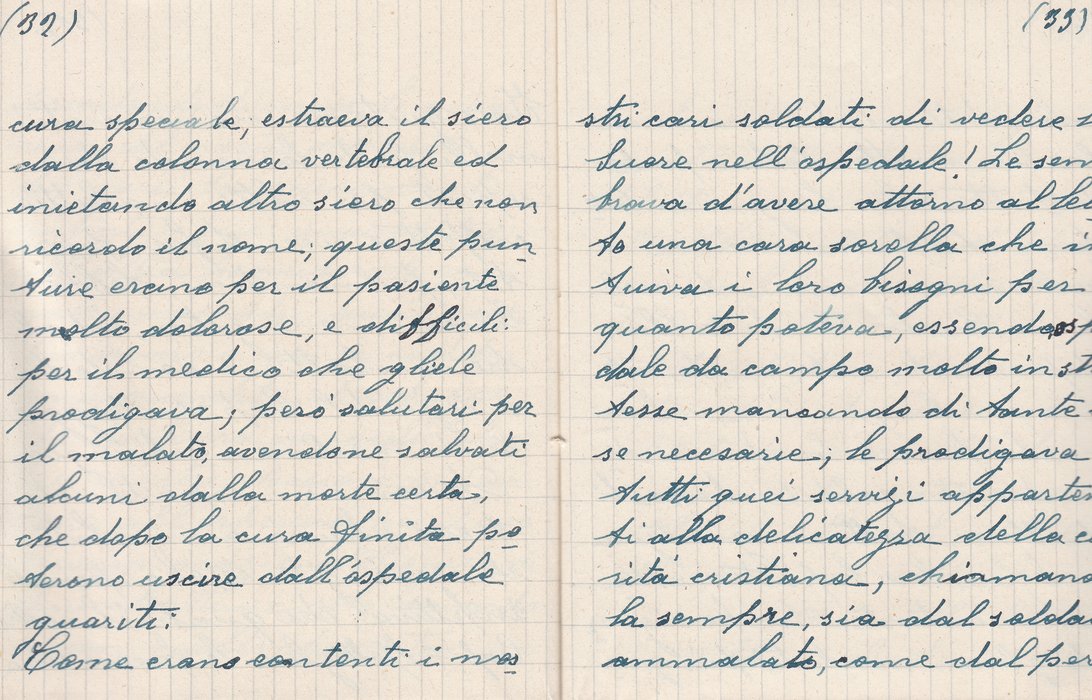 (32)
cura speciale, estraeva il siero
dalla colonna vertebrale ed
inietando altro siero che non
ricordo il nome; queste pun
ture erano per il pasiente
molto dolorose, e difficili:
per il medico che gliele
prodigava; però salutari per
il malato, avendone salvati
alcuni dalla morte certa,
che dopo la cura finita po
terono uscire dall'ospedale
guariti:
Come erano contenti i nos
(33)
stri cari soldati di vedere
suore nell'ospedale! Le sem
brava d'avere attorno al let
to una cara sorella che in
tuiva i loro bisogni per
quanto poteva, essendo osp
dale da campo molto in st
tesse mancando di tante
se necesarie; le prodigava
tutti quei servizi apparte
ti alla delicatezza della c
rità cristiana, chiamand
la sempre, sia dal solda
ammalato, come dal per